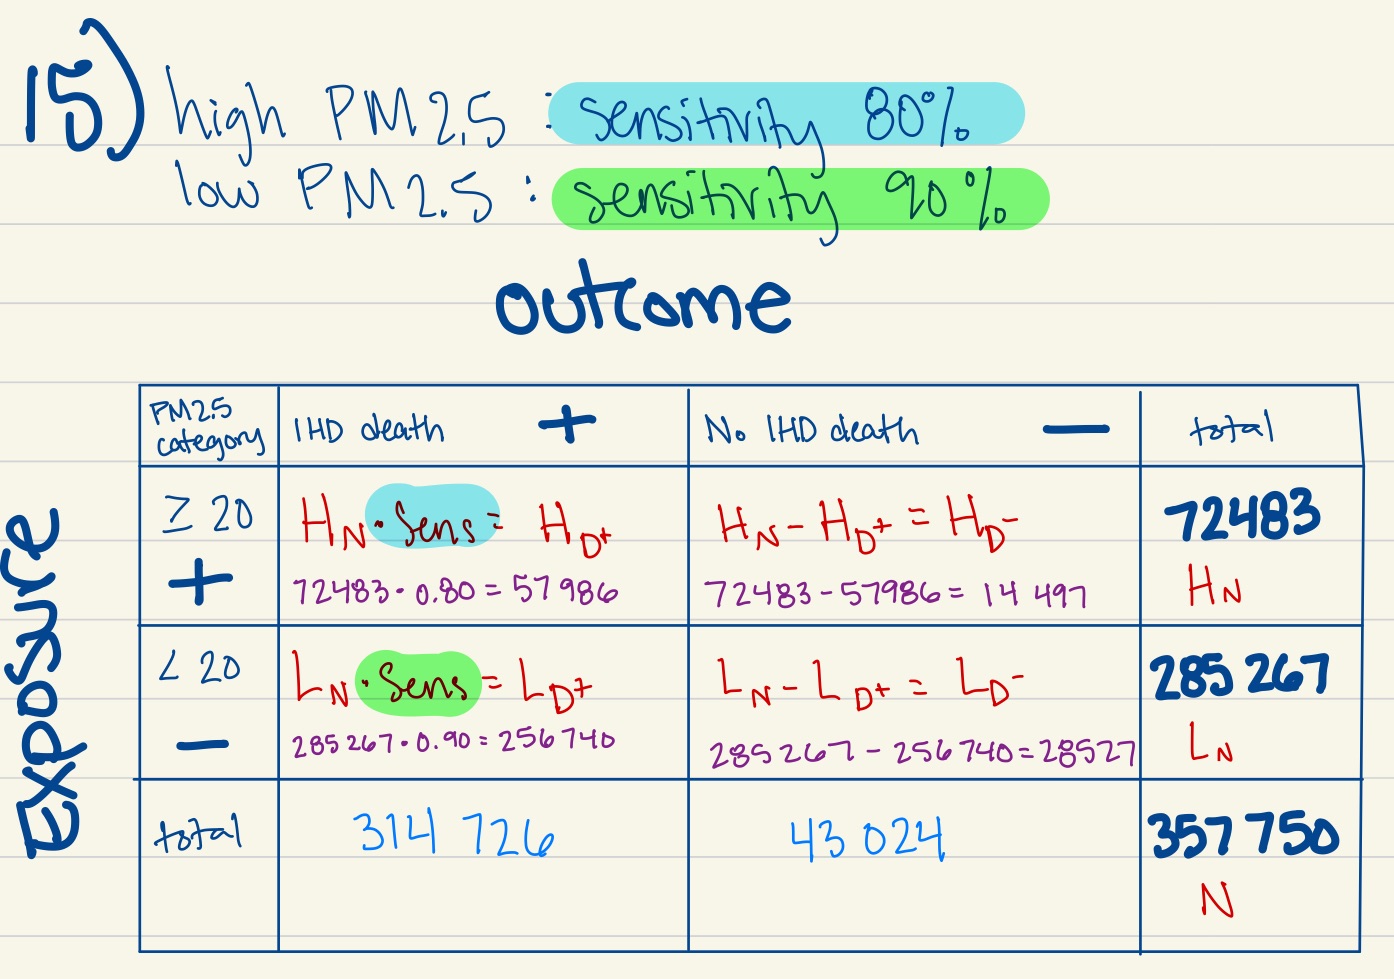 15) high PM2.5 : sensitivity 80%
low PM2.5 : sensitivity 90%
outcome
Exposure
PM2.5 category
IHD death +
No IHD death —
total
≥ 20 +
H_N · Sens = H_D+
72483 · 0.80 = 57986
H_N - H_D+ = H_D-
72483 - 57986 = 14 497
72483
H_N
< 20 —
L_N · Sens = L_D+
285267 · 0.90 = 256740
L_N - L_D+ = L_D-
285267 - 256740 = 28527
285 267
L_N
total
314 726
43 024
357 750
N